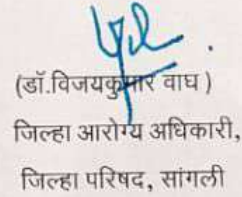 (डॉ.विजयकुमार वाघ )
जिल्हा आरोग्य अधिकारी,
जिल्हा परिषद, सांगली